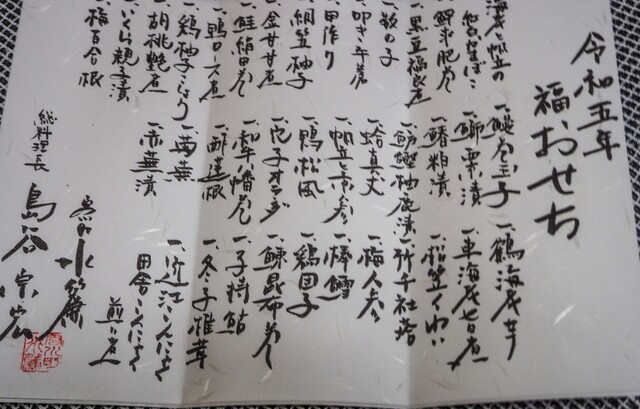 令和五年
福、おせち
海老と帆立の
一、数の子
一、黒豆福良煮
一、叩き牛蒡
一、甲作り
一、網笠柚子
一、金柑甘煮
一、鮭絹田巻
一、鴨ロース煮
一、鶏柚子
一、胡桃
一、いくら親子漬
一、梅百合根
一、鰻巻玉子
一、鰤栗漬
一、鰆粕漬
一、柚庵漬
一、蛤真丈
一、帆立と赤参
一、鴨松風
一、穴子
一、和牛八幡巻
一、酢蓮根
一、苺蕪
一、赤蕪漬
一、鶴海老芋
一、車海老旨煮
一、松笠くわい
一、竹千社塔
一、梅人参
一、棒鱈
一、鶏団子
一、鰊昆布巻
一、子持鮎
一、冬子椎茸
一、近江こんにゃく
田舎こんにゃく
煎り煮
総料理長
島谷宗宏